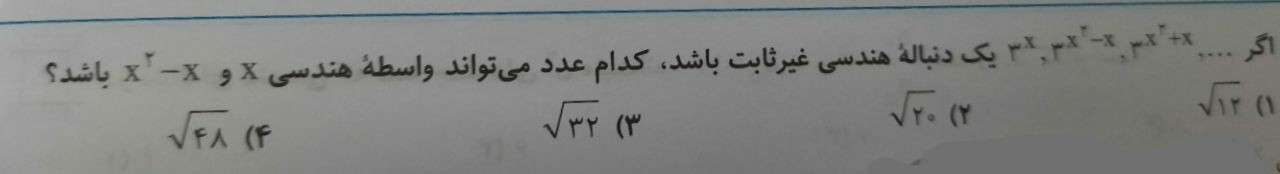 اگر ‎3^x, 3^{x^2-x}, 3^{x^2+x}, ....‎ یک دنبالهٔ هندسی غیرثابت باشد، کدام عدد می‌تواند واسطهٔ هندسی x و x^۲ − x باشد؟
۱) √۱۲ ۲) √۲۰ ۳) √۳۲ ۴) √۴۸